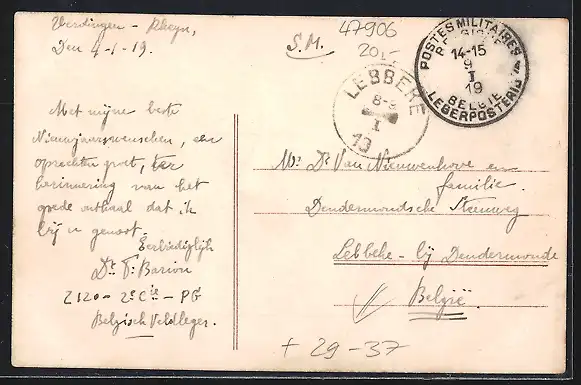 Uerdingen - Rheyn,
Den 4-1-19.
S.M.
47906
20.-
POSTES MILITAIRES
BELGIQUE
14-15
9
I
19
BELGIE
LEGERPOSTERIJ 4
LEBBEKE
8-9
I
19
Met mijne beste
Nieuwjaarswenschen, een
oprechten groet, ter
herinnering van het
goede onthaal dat ik
bij u genoot.
Eerbiediglijk
Dr F. Barion
Z120 - 2e Cie - PG
Belgisch Veldleger.
Mr Dr Van Nieuwenhove en
familie.
Dendermondsche Steenweg
Lebbeke - bij Dendermonde
België.
+ 29-37